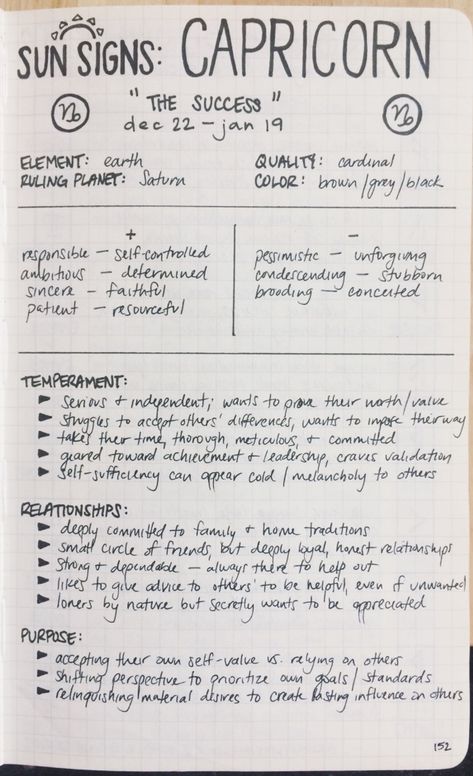 SUN SIGNS: CAPRICORN
"THE SUCCESS"
dec 22 - jan 19
ELEMENT: earth
QUALITY: cardinal
RULING PLANET: Saturn
COLOR: brown/grey/black
+
responsible - self-controlled
ambitious - determined
sincere - faithful
patient - resourceful
-
pessimistic - unforgiving
condescending - stubborn
brooding - conceited
TEMPERAMENT:
► serious + independent; wants to prove their worth/value
► struggles to accept others' differences, wants to impose their way
► takes their time, thorough, meticulous, + committed
► geared toward achievement + leadership, craves validation
► self-sufficiency can appear cold / melancholy to others
RELATIONSHIPS:
► deeply committed to family + home traditions
► small circle of friends, but deeply loyal, honest relationships
► strong + dependable - always there to help out
► likes to give advice to others' to be helpful, even if unwanted
► loners by nature but secretly wants to be appreciated
PURPOSE:
► accepting their own self-value vs. relying on others
► shifting perspective to prioritize own goals / standards
► relinquishing material desires to create lasting influence on others
152